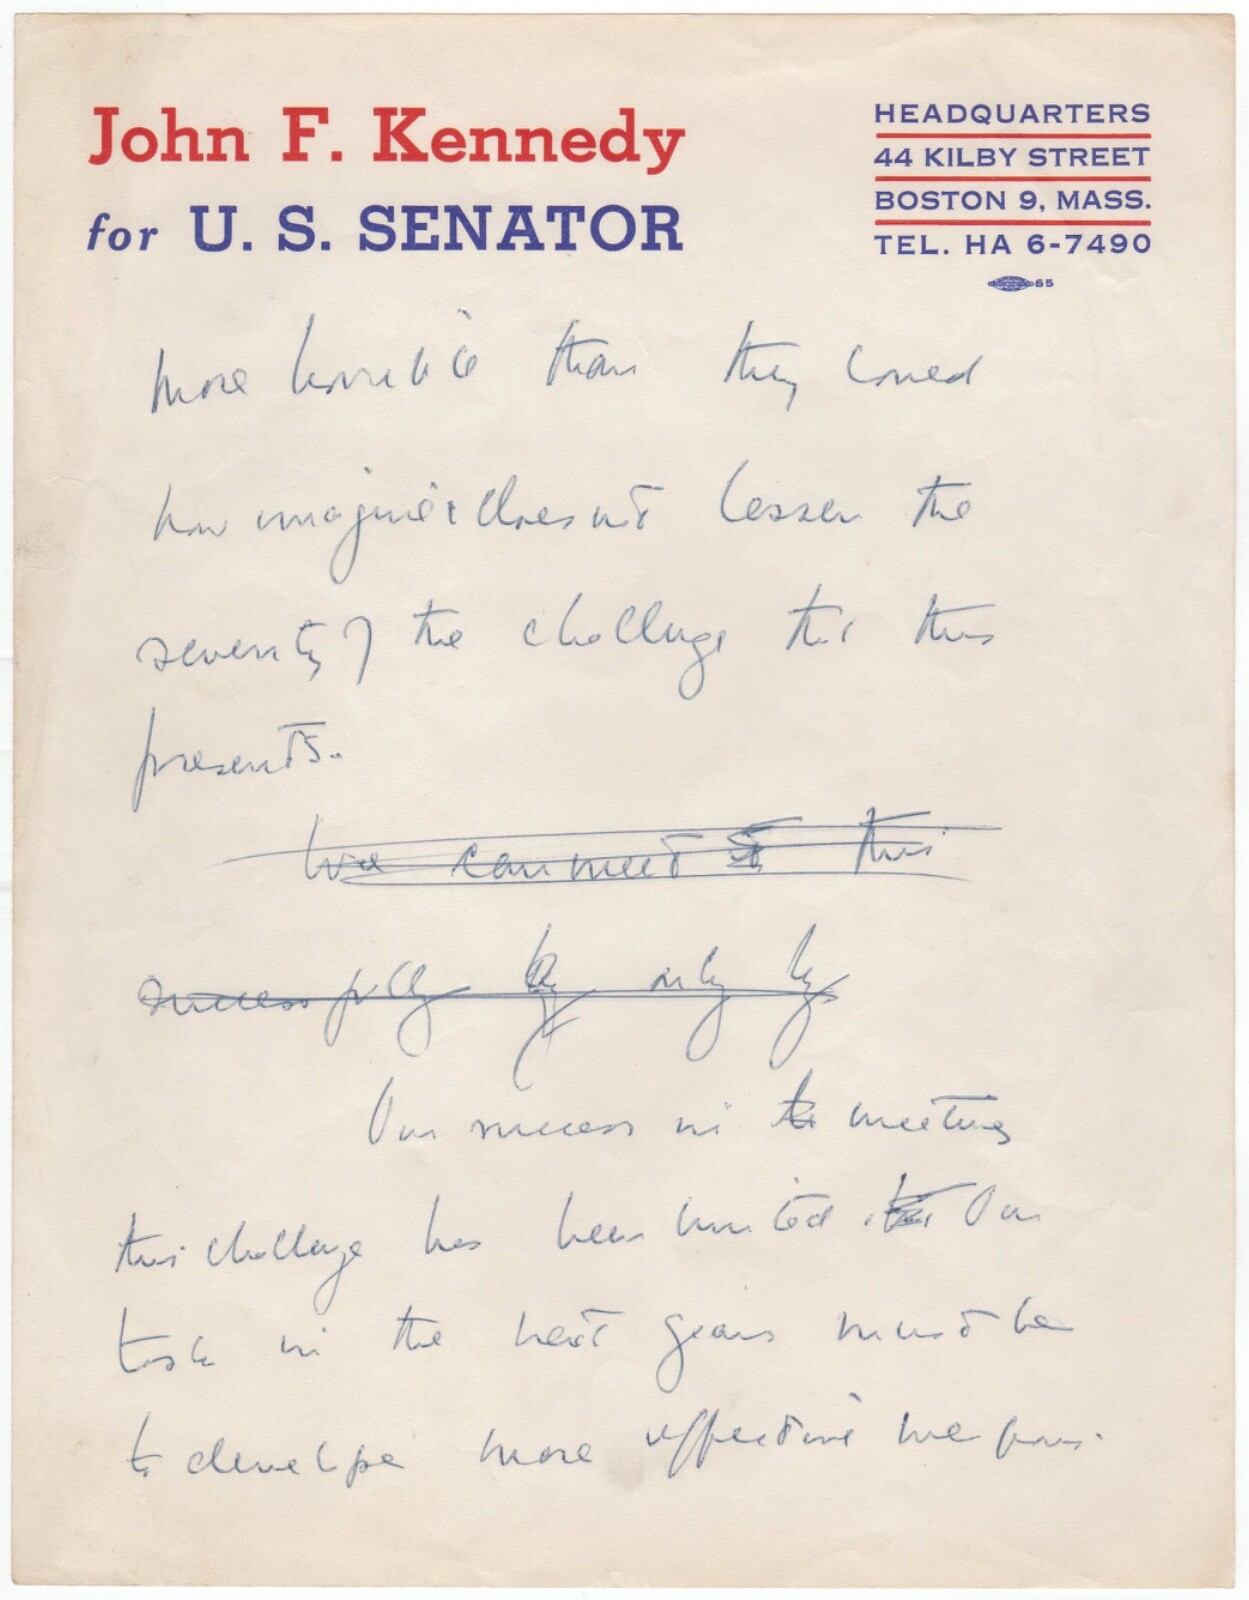 John F. Kennedy
for U. S. SENATOR
HEADQUARTERS
44 KILBY STREET
BOSTON 9, MASS.
TEL. HA 6-7490
65
more horrible than they could
have imagined does not lessen the
severity of the challenge that this
presents.
We can meet this
successfully by only by
Our success in meeting
this challenge has been limited Our
task in the next years must be
to develope more effective weapons.